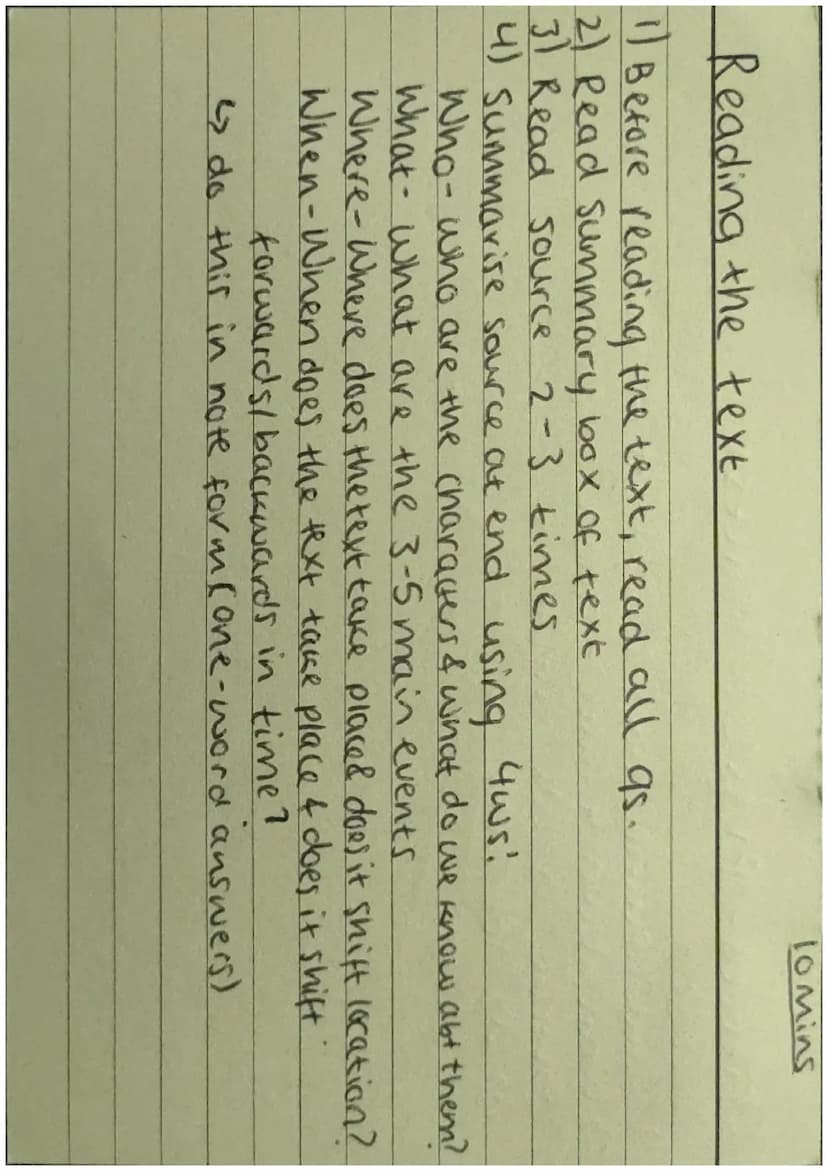 10 mins
Reading the text
1) Before reading the text, read all qs.
2) Read summary box of text
3) Read source 2-3 times
4) Summarise source at end using 4ws:
Who - who are the characters & what do we know abt them?
What - What are the 3-5 main events
Where - Where does the text take place & does it shift location?
When - When does the text take place & does it shift
forwards/backwards in time?
↳ do this in note form (one-word answers)